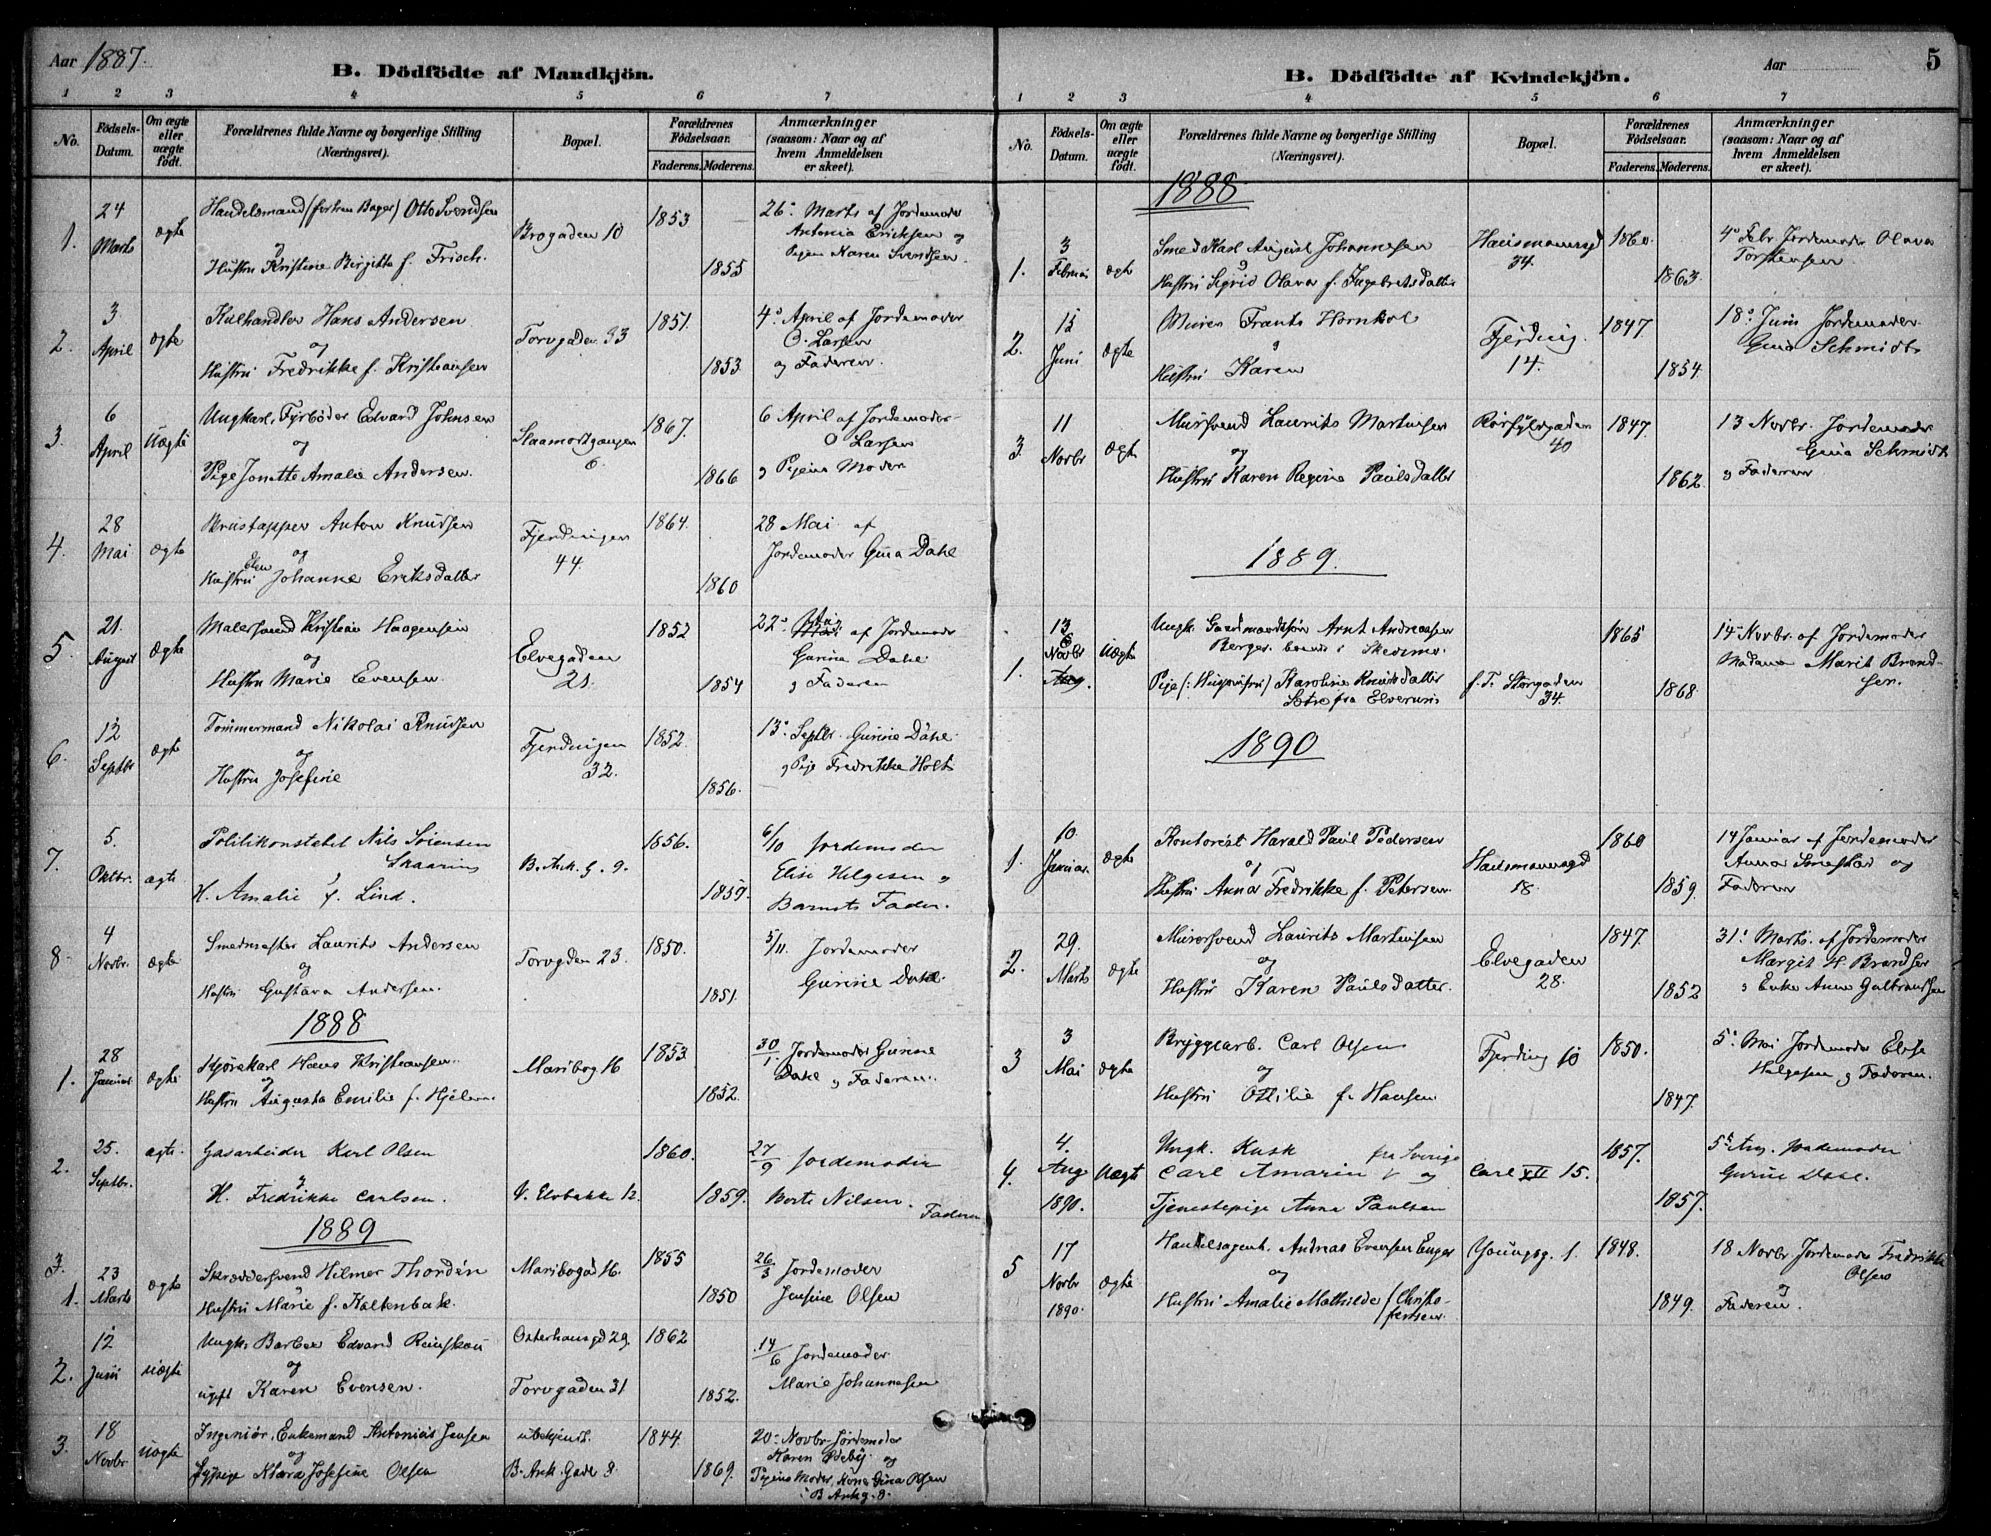 Aar 1887.
B. Dödfödte af Mandkjön.
1 2 3 4 5 6 7
No. Födsels-Datum. Om ægte eller uægte födt. Forældrenes fulde Navne og borgerlige Stilling (Næringsvei). Bopæl. Forældrenes Födselsaar. Faderens. Moderens. Anmærkninger (saasom: Naar og af hvem Anmeldelsen er skeet).
1. 24 Marts ægte Handelsmand (forhen Bager) Otto Svendsen
og
Hustru Kristine Birgitte f. Frisch.
Brogaden 10 1853 1855
26. Marts af Jordemoder
Antonia Ericksen og
Pigen Karen Svendsen.
2. 3 April ægte Kulhandler Hans Andersen
og
Hustru Fredrikke f. Kristiansen
Torvgaden 33 1851. 1853
4. April af Jordemoder
O. Larsen
og Faderen.
3. 6 April Uægte Ungkarl, Fyrbøder Edvard Johnsen
og
Pige Jonette Amalie Andersen.
6. 1867. 1866
6 April af Jordemoder
O Larsen
og Pigens Moder
4. 28 Mai ægte Anton Knudsen
og
Hustru Elen Johanne Eriksdatter
Fjerdingen
44. 1864. 1860
28 Mai af
Jordemoder Gina Dahl
5. 21. August ægte Malersvend Kristian Haagensen
og
Hustru Marie Evensen.
Elvegaden
21. 1852 1854
22. Aug af Jordemoder
Gurine Dahl
og Faderen
6. 12 Septbr ægte Tømmermand Nikolai Knudsen
og
Hustru Josefine
Fjerdingen
32. 1852. 1856.
13. Septbr. Gurine Dahl
og Pige Fredrikke Holt
7. 5. Oktbr. ægte Politikonstabel Nils Sørensen
Skaaring
H. Amalie f. Lind.
B. Ank. G. 9. 1856. 1859.
6/10 Jordemoder
Elise Helgesen og
Barnets Fader.
8. 4 Novbr. ægte Smedmester Laurits Andersen
og
Hustru Gustava Andersen.
Torvgden 23. 1850. 1851.
5/11. Jordemoder
Gurine Dahl
1888
1. 28 Januar ægte Kjørekarl Hans Kristiansen.
og
Hustru Augusta Emilie f. Hjelm
Maribog 16 1853 1852.
30/1. Jordemoder Gurine
Dahl og Faderen.
2. 25. Septbr. ægte Gasarbeider Karl Olsen
og
H. Fredrikke Carlsen.
V. Elvbakke 12. 1860. 1859.
27/9 Jordemoder
Berte Nilsen. Faderen
1889
3. 1. 23 Marts ægte Skræddersvend Hilmer Thordén
Hustru Marie f. Kaltenbak.
Maribogd 16. 1855 1850
26/3 Jordemoder
Jensine Olsen
2. 12 Juni uægte Ungk. Barber Edvard Reinskou
og
ugift Karen Evensen.
Osterhausgd 29.
Torvgaden 31 1862 1852.
14/6 Jordemoder
Marie Johannesen
3. 18 Novbr uægte Ingeniør, Enkemand Antonius Jensen
og
Sypige Klara Josefine Olsen
ubekjendt.
B. Ank. Gade 8. 1844. 1869.
20. Novbr. Jordemoder
Karen Edeby. og
Pigens Moder, Kone Gina Olsen
i B Ankg. 8.
Aar 5
B. Dödfödte af Kvindekjön.
1 2 3 4 5 6 7
No. Födsels-Datum. Om ægte eller uægte födt. Forældrenes fulde Navne og borgerlige Stilling (Næringsvei). Bopæl. Forældrenes Födselsaar. Faderens. Moderens. Anmærkninger (saasom: Naar og af hvem Anmeldelsen er skeet).
1888.
1. 3 Februar ægte Smed Karl August Johannesen
og
Hustru Sigrid Olava f. Ingebretsdatter
Hausmannsgd
34. 1860. 1863.
4. Febr. Jordemoder Olava
Torstensen
2. 15 Juni ægte Murer Frants Hornkol
og
Hustru Karen
Fjerding.
14. 1847. 1854.
18. Juni Jordemoder
Gina Schmidt
3. 11 Novbr ægte Mursvend Laurits Martinsen
og
Hustru Karen Regine Paulsdatter
40 1847. 1862.
13 Novbr. Jordemoder
Gina Schmidt
og Faderen
1889.
1. 13 Novbr Aug. Uægte Ungk. Gaardmandssøn Arnt Andreassen
Berger
Pige Karoline Knudsdatter
Sætre fra Elverum
f. T. Storgaden
34. 1865 1868.
14 Novbr. af Jordemoder
Madame Marit Brandsen.
1890
1. 10. Januar. ægte Kontorist Harald Paul Pedersen
og
Hustru Anna Fredrikke f. Petersen.
Hausmannsgd
18. 1860 1859.
14 Januar af Jordemoder
Anna og
Faderen
2. 29. Marts ægte Murersvend Laurits Martinsen
og
Hustru Karen Paulsdatter.
Elvegaden
28. 1847. 1852
31. Marts. af Jordemoder
Margit H. Brandsen
og Enke Anne Gulbrandsen
3 3 Mai ægte Bryggearb. Carl Olsen
og
Hustru Ottilie f. Hansen
Fjerding 10 1850. 1847.
5. Mai Jordemoder Elise
Helgesen og Faderen.
4. 4. Aug 1890. Uægte Ungk. Kusk fra Sverige
Carl Amarin og
Tjenestepige Anna Paulsen
Carl XII 15. 1857. 1857.
5. Aug. Jordemoder
Gurine Dahl.
5 17 Novbr 1890. ægte Handelsagent. Andreas Evensen Enger
og
Hustru Amalie Mathilde f. Christofersen.
Youngsg. 1. 1848. 1849.
18 Novbr Jordemoder Fredrikke
Olsen
og
Faderen.